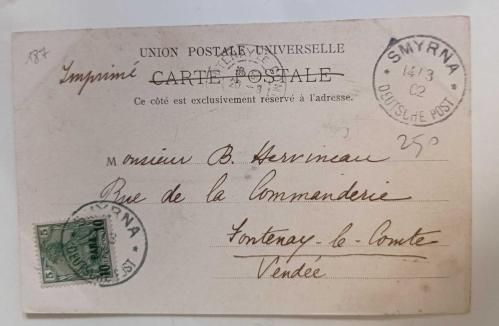 187
UNION POSTALE UNIVERSELLE
Imprimé
CARTE POSTALE
Ce côté est exclusivement réservé à l'adresse.
SMYRNA
14/3
02
DEUTSCHE POST
250
Monsieur B. Hervineau
Rue de la Commanderie
Fontenay-le-Comte
Vendée
SMYRNA
DEUTSCHE POST
5
5
10 PARA 10